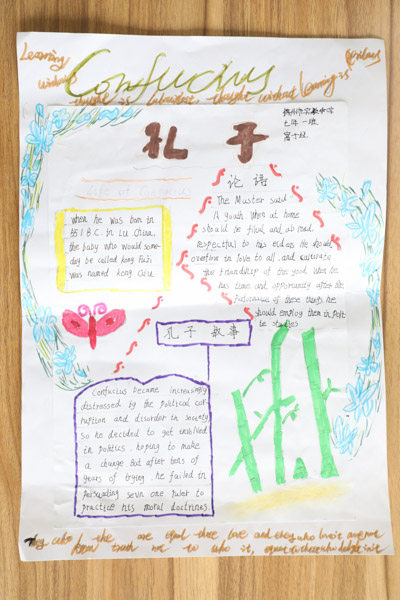 Learning perilous
without Confucius
thought is labour lost thought without learning is
孔子
七年一班
论诗
The Master said
A youth when at home
should be filial, and abroad,
respectful to his elders. He should
overflow in love to all, and cultivate
the friendship of the good. When he
has time and opportunity after the
performance of these things, he
should employ them in polite
studies
when he was born in
551 B.C. in Lu China,
the baby who would some-
day be called kong Fuzi
was named kong Qiu.
孔子 故事
Confucius became increasingly
distressed by the political cor-
ruption and disorder in society
So he decided to get involved
in politics, hoping to make
a change but after tens of
years of trying he failed in
Persuading seven one ruler to
practice his moral doctrines.
They who the are equal those love and they who love it are not
know truth not to who it, equal to those who delight in it